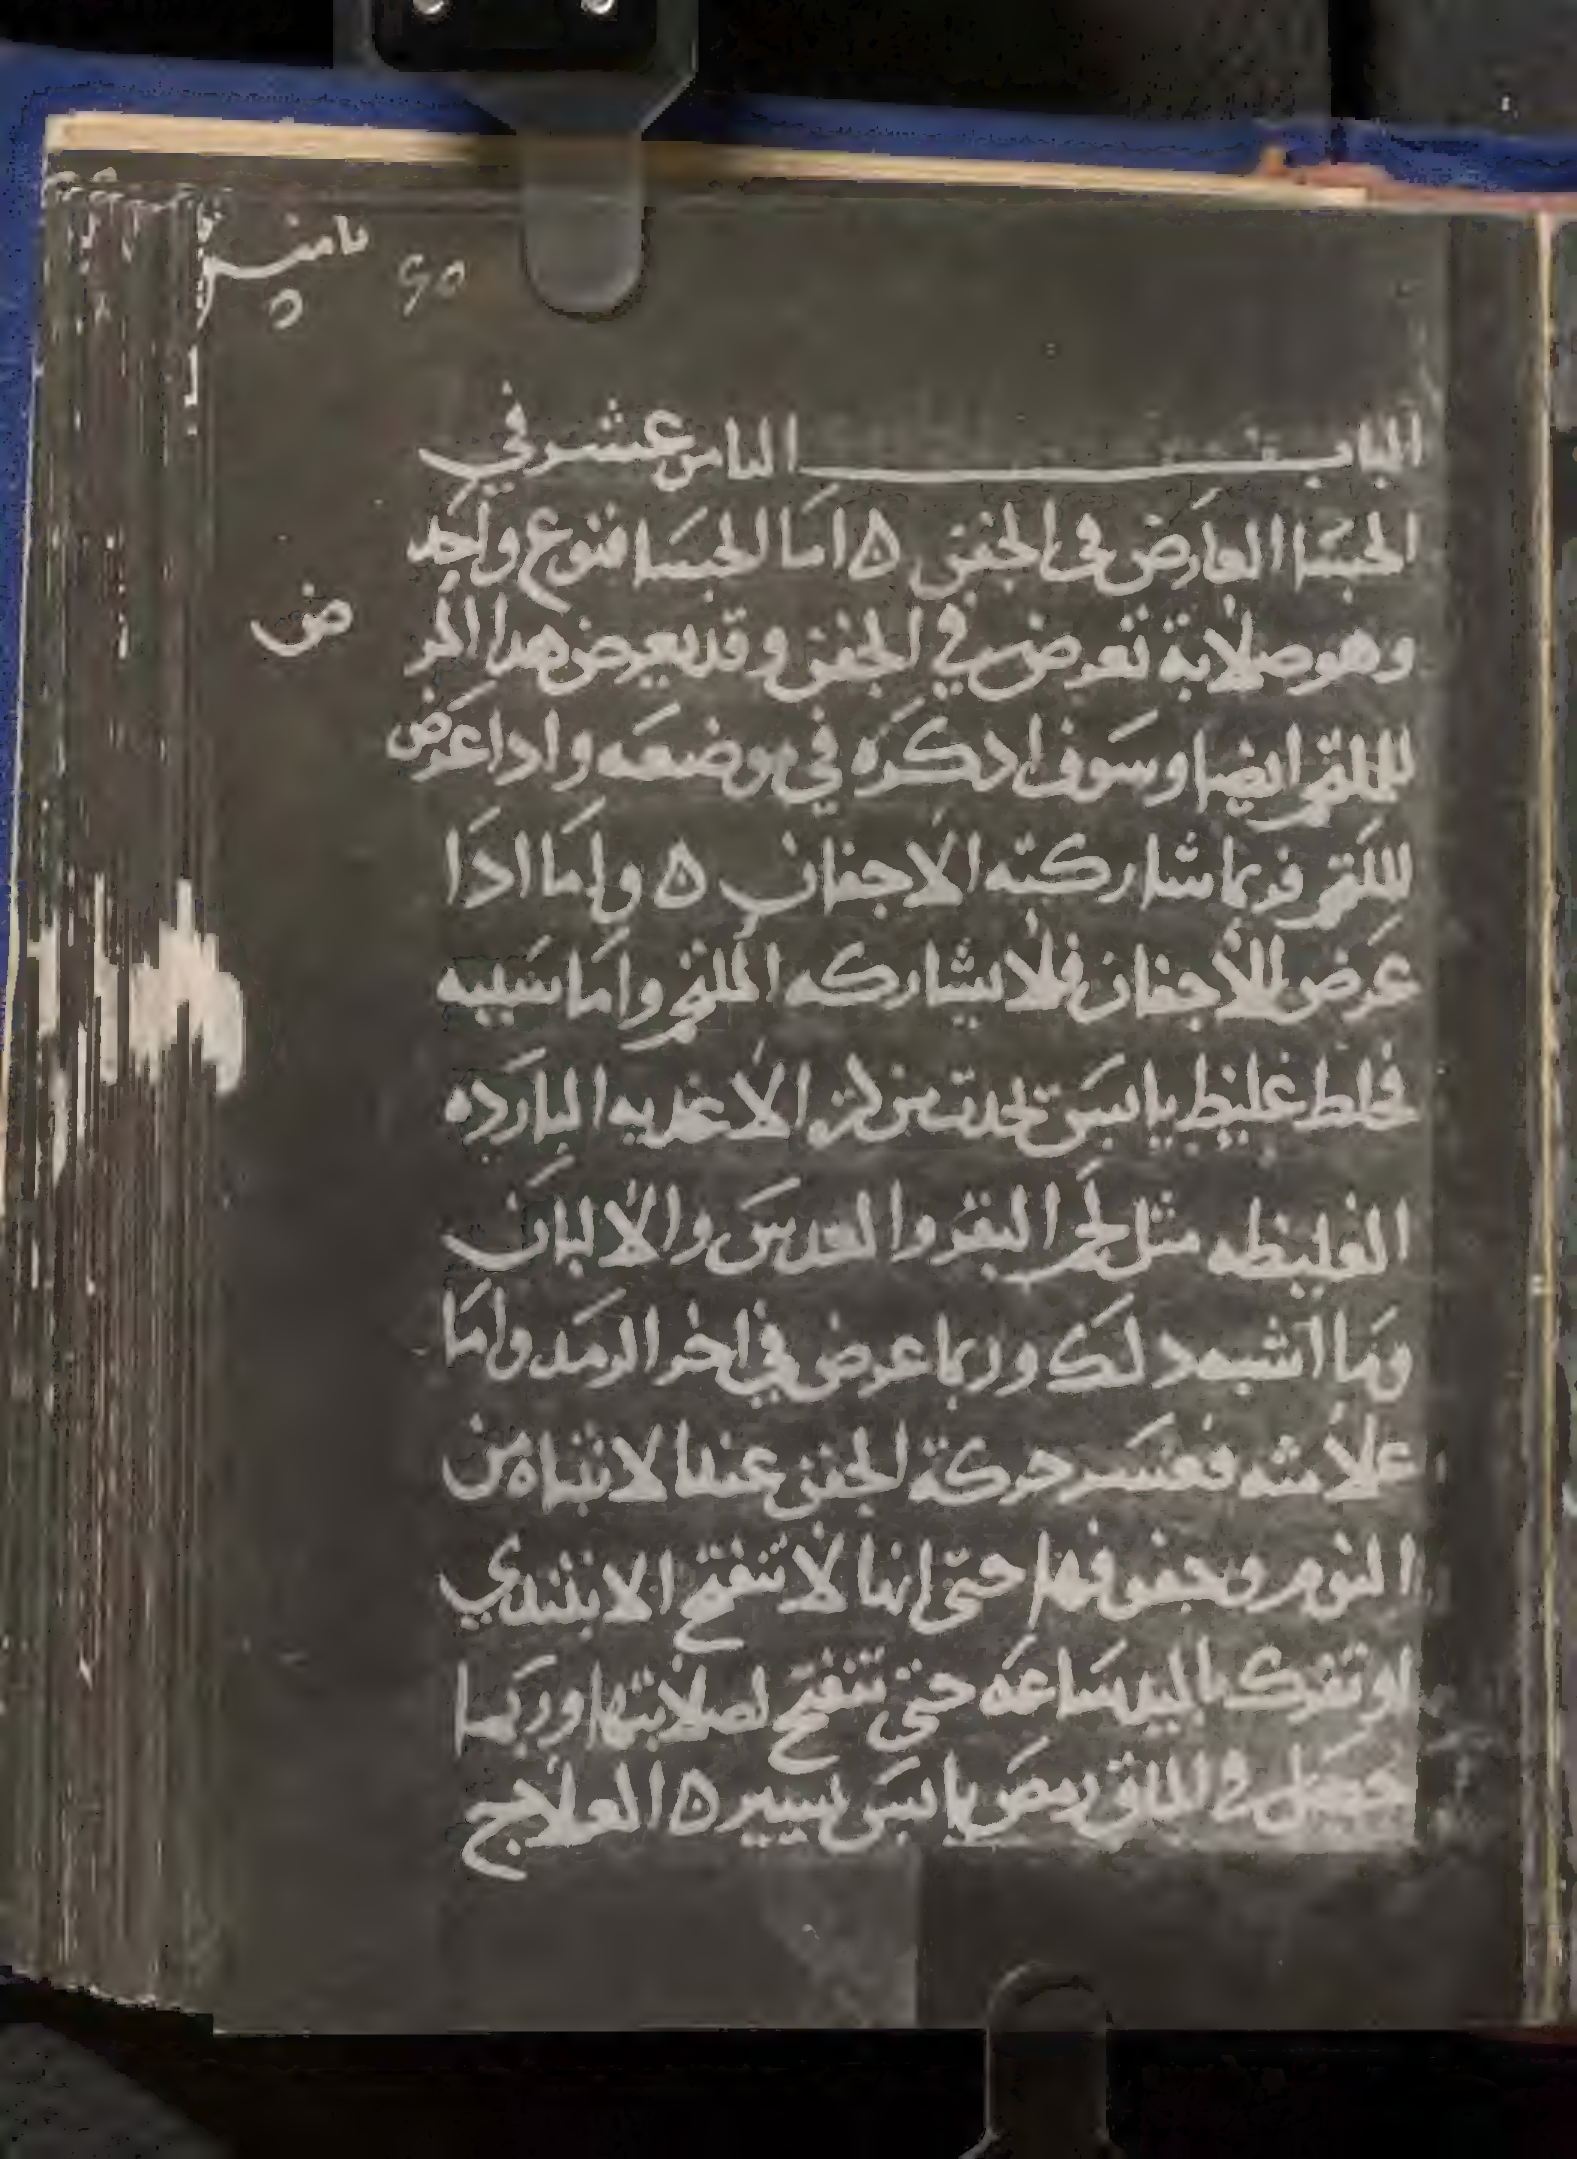 الباب الثامن عشر في
الجسا العارض في الجفن ه اما الجسا فنوع واحد
وهو صلابة تعرض في الجفن وقد يعرض هدا المر
ض
للملتحم ايضا وسوف ادكره في موضعه وادا عرض
للملتحم فربما شاركته الاجفان ه واما ادا
عرض للأجفان فلا يشاركه الملتحم واما سببه
فخلط غليظ يابس تحدث من الاغديه البارده
الغليظه مثل لحم البقر والعدس والألبان
وما اشبه دلك وربما عرض في اخر الرمد واما
علامته فعسر حركة الجفن عند الانتباه من
النوم وجفوفها حتى انها لا تنفتح الا بتندي
او تفرك باليد ساعه حتى تنفتح لصلابتها وربما
حصل في الماق رمص يابس يسير ه العلاج